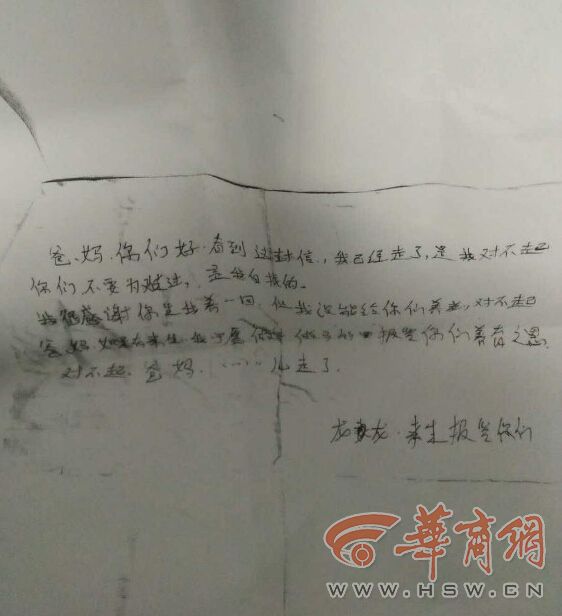 爸、妈、你们好·看到这封信,我已经走了,是我对不起
你们不要为难过,是我自找的。
我很感谢你生我养一回,但我没能给你们养老,对不起
爸妈 如果有来生 我 报答你们养育之恩.
对不起、爸妈、……儿走了.
龙 龙·来生报答你们
華商網
WWW.HSW.CN